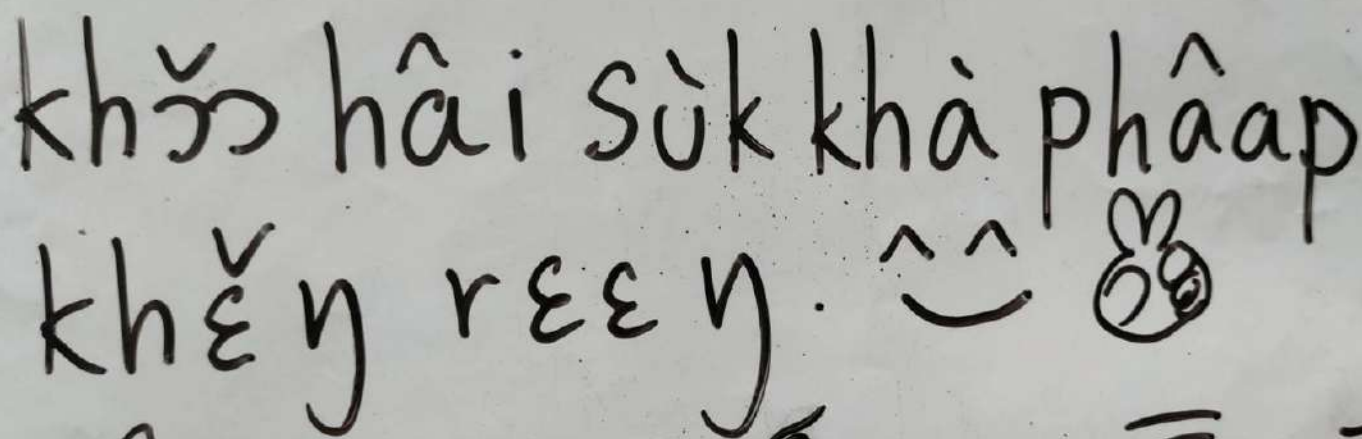 khɔ̌ɔ hâi sùkkhà phâap
khɛ̌ŋ rɛɛŋ. ^‿^